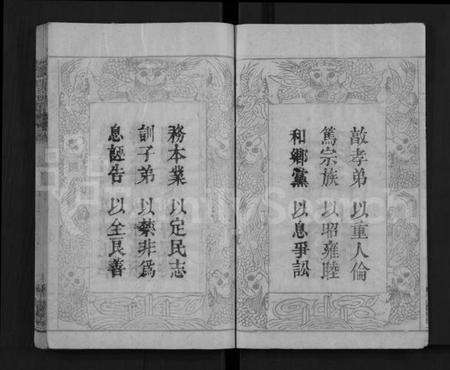 敦孝弟以重人倫
篤宗族以昭雍睦
和鄉黨以息爭訟
務本業以定民志
訓子弟以禁非為
息誣告以全良善
FamilySearch